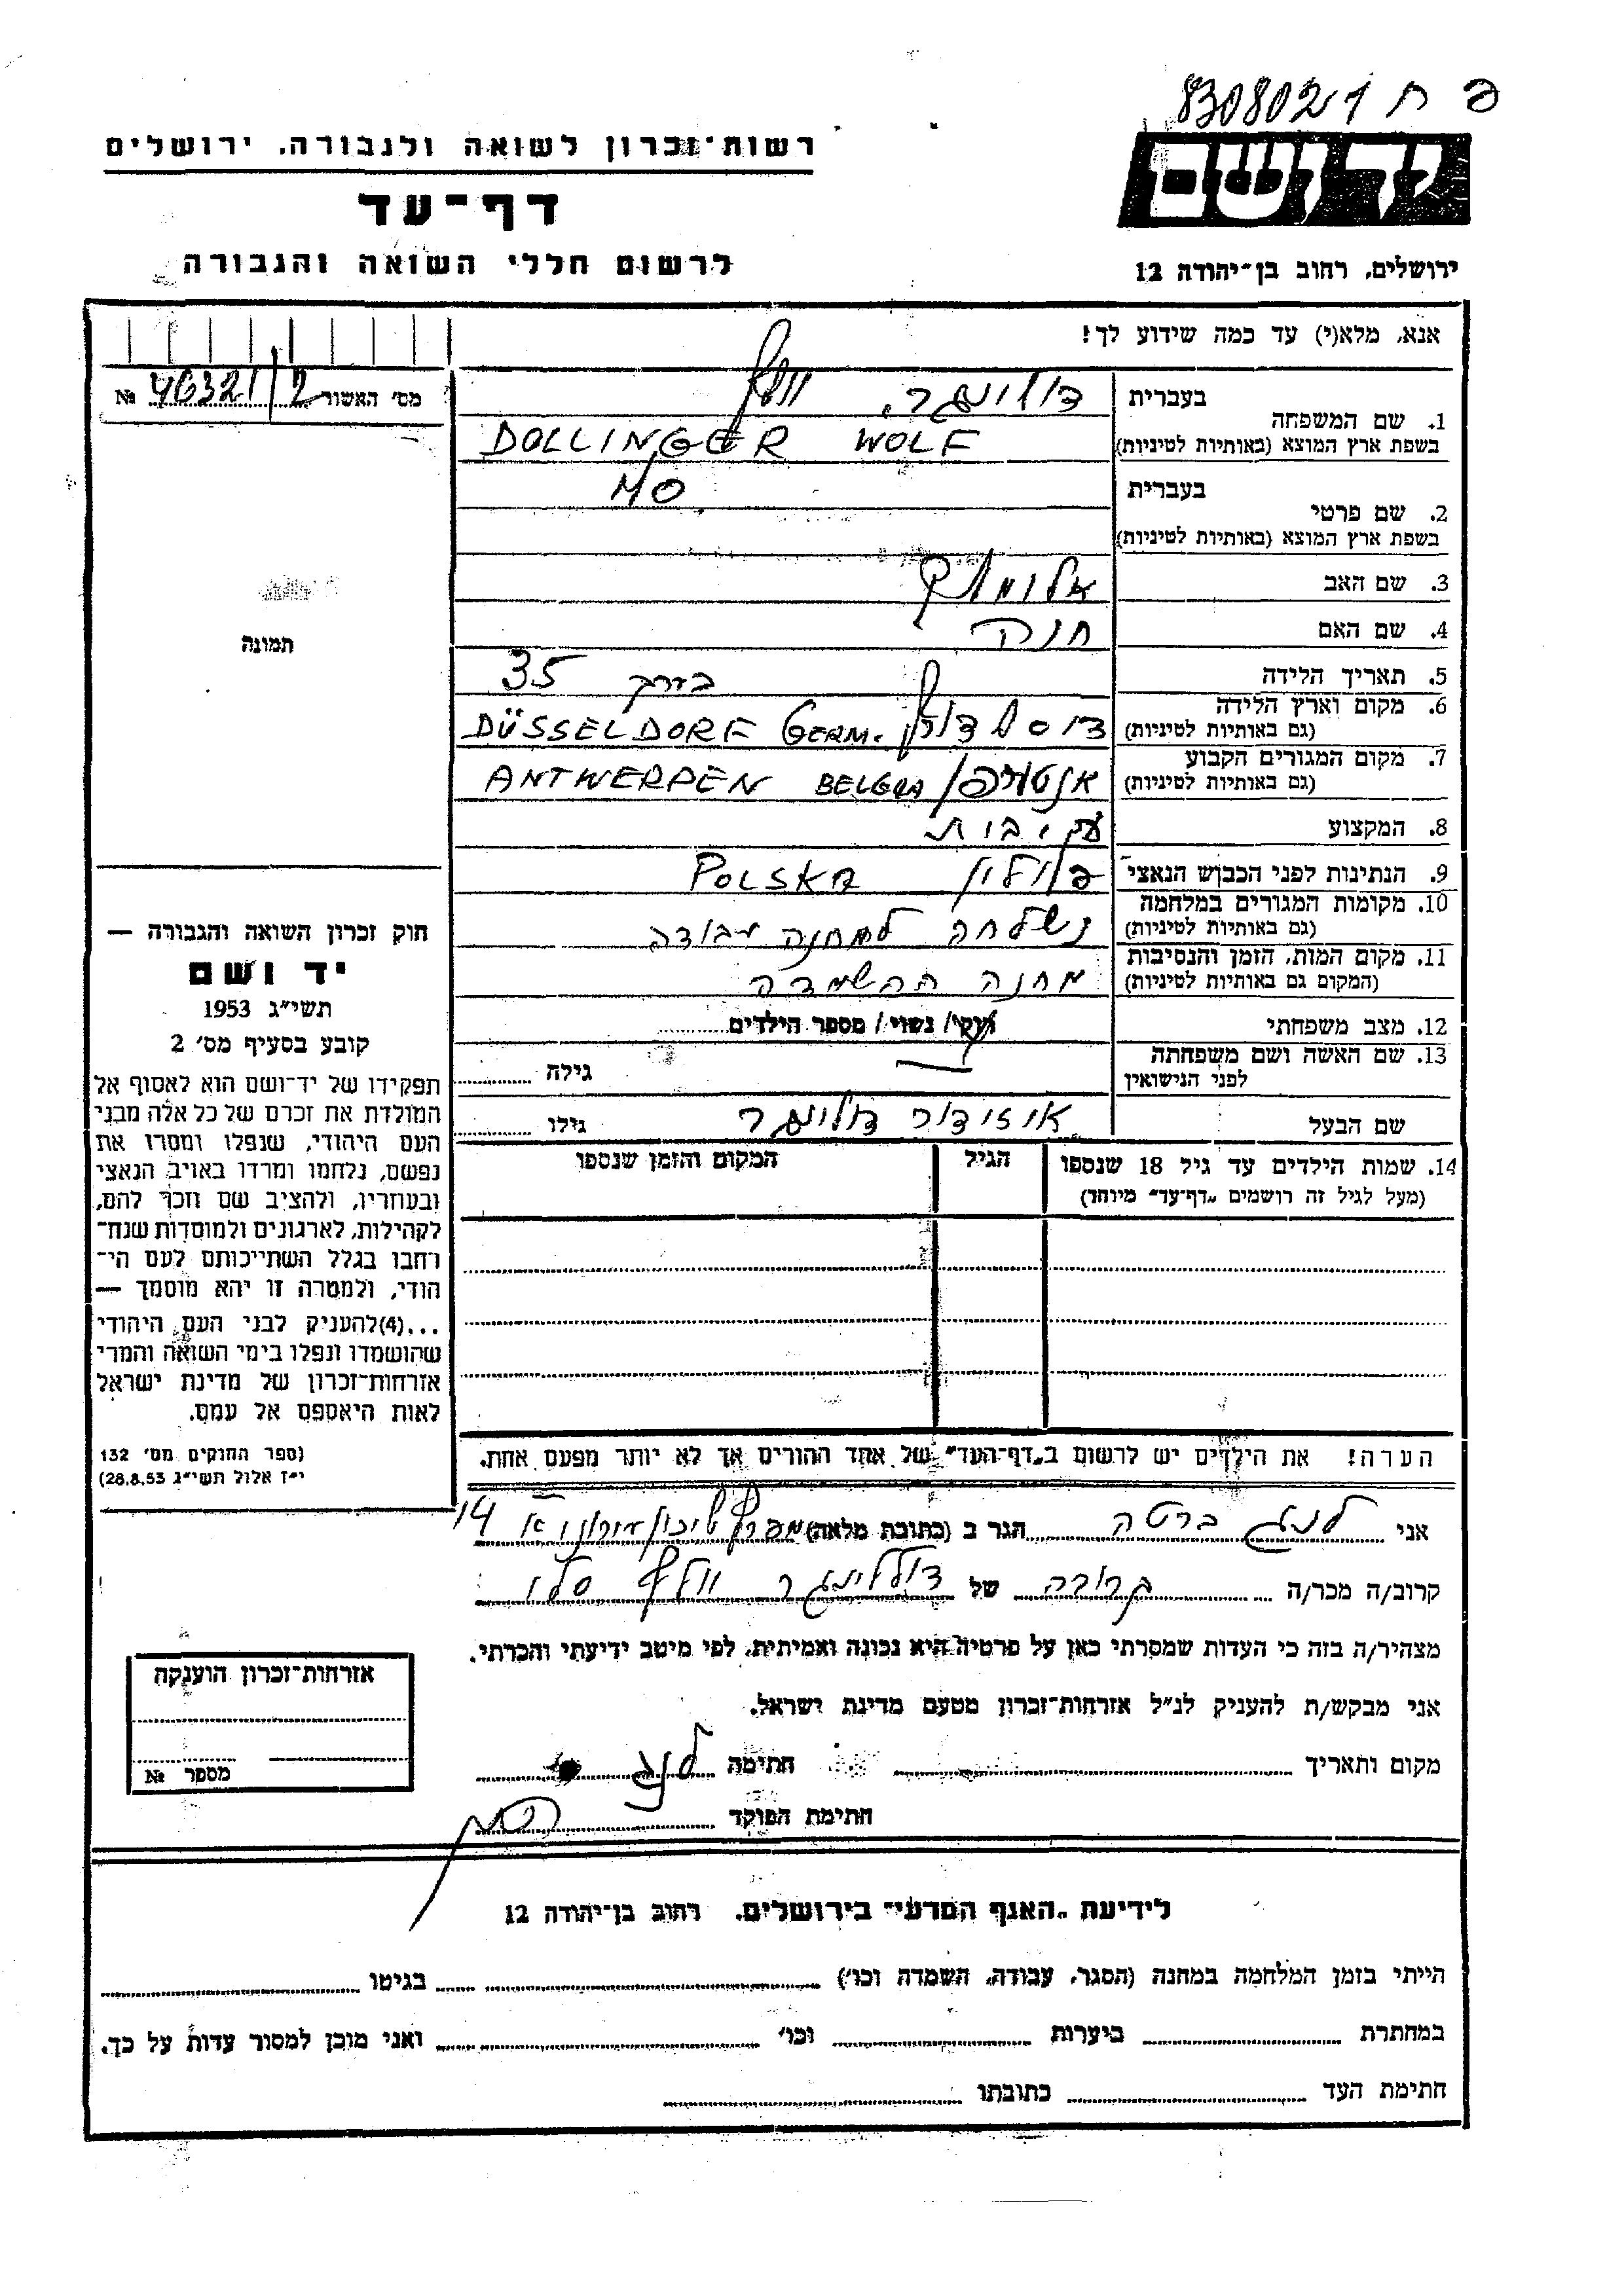 פ ח 8308021
רשות־זכרון לשואה ולגבורה, ירושלים
יד ושם
דף־עד
לרשום חללי השואה והגבורה
ירושלים, רחוב בן־יהודה 12
אנא, מלא(י) עד כמה שידוע לך!
מס' האשור 46321/2 №
1. שם המשפחה
בעברית דולינגר, וולף
בשפת ארץ המוצא (באותיות לטיניות) DOLLINGER WOLF
2. שם פרטי
בעברית
בשפת ארץ המוצא (באותיות לטיניות)
3. שם האב
4. שם האם חנה
5. תאריך הלידה בערך 35
6. מקום וארץ הלידה
(גם באותיות לטיניות) דיסלדורף DÜSSELDORF GERM.
7. מקום המגורים הקבוע
(גם באותיות לטיניות) אנטורפן ANTWERPEN
8. המקצוע
9. הנתינות לפני הכבוש הנאצי פולין POLSKA
10. מקומות המגורים במלחמה
(גם באותיות לטיניות) נשלחה למחנה עבודה
11. מקום המות, הזמן והנסיבות
(המקום גם באותיות לטיניות) מחנה ההשמדה
12. מצב משפחתי רוק/ נשוי/ מספר הילדים
13. שם האשה ושם משפחתה
לפני הנישואין גילה
שם הבעל איזידור דולינגר גילו
14. שמות הילדים עד גיל 18 שנספו הגיל המקום והזמן שנספו
(מעל לגיל זה רושמים „דף־עד" מיוחד)
הערה! את הילדים יש לרשום ב„דף־העד" של אחד ההורים אך לא יותר מפעם אחת.
תמונה
חוק זכרון השואה והגבורה —
יד ושם
תשי"ג 1953
קובע בסעיף מס' 2
תפקידו של יד־ושם הוא לאסוף אל
המולדת את זכרם של כל אלה מבני
העם היהודי, שנפלו ומסרו את
נפשם, נלחמו ומרדו באויב הנאצי
ובעוזריו, ולהציב שם וזכר להם,
לקהילות, לארגונים ולמוסדות שנח־
רחבו בגלל השתייכותם לעם הי־
הודי, ולמטרה זו יהא מוסמך —
...(4)להעניק לבני העם היהודי
שהושמדו ונפלו בימי השואה והמרי
אזרחות־זכרון של מדינת ישראל
לאות היאספם אל עמם.
(ספר החוקים מס' 132
י"ז אלול תשי"ג 28.8.53)
אני לנג ברטה הגר ב (כתובת מלאה) 14
קרוב/ה מכר/ה קרובה של דוללינגר וולף
מצהיר/ה בזה כי העדות שמסרתי כאן על פרטיה היא נכונה ואמיתית, לפי מיטב ידיעתי והכרתי.
אני מבקש/ת להעניק לנ"ל אזרחות־זכרון מטעם מדינת ישראל.
מקום ותאריך חתימה לנג
חתימת הפוקד
אזרחות־זכרון הוענקה
מספר №
לידיעת „האגף המדעי" בירושלים, רחוב בן־יהודה 12
הייתי בזמן המלחמה במחנה (הסגר, עבודה, השמדה וכו') בגיטו
במחתרת ביערות וכו' ואני מוכן למסור עדות על כך.
חתימת העד כתובתו